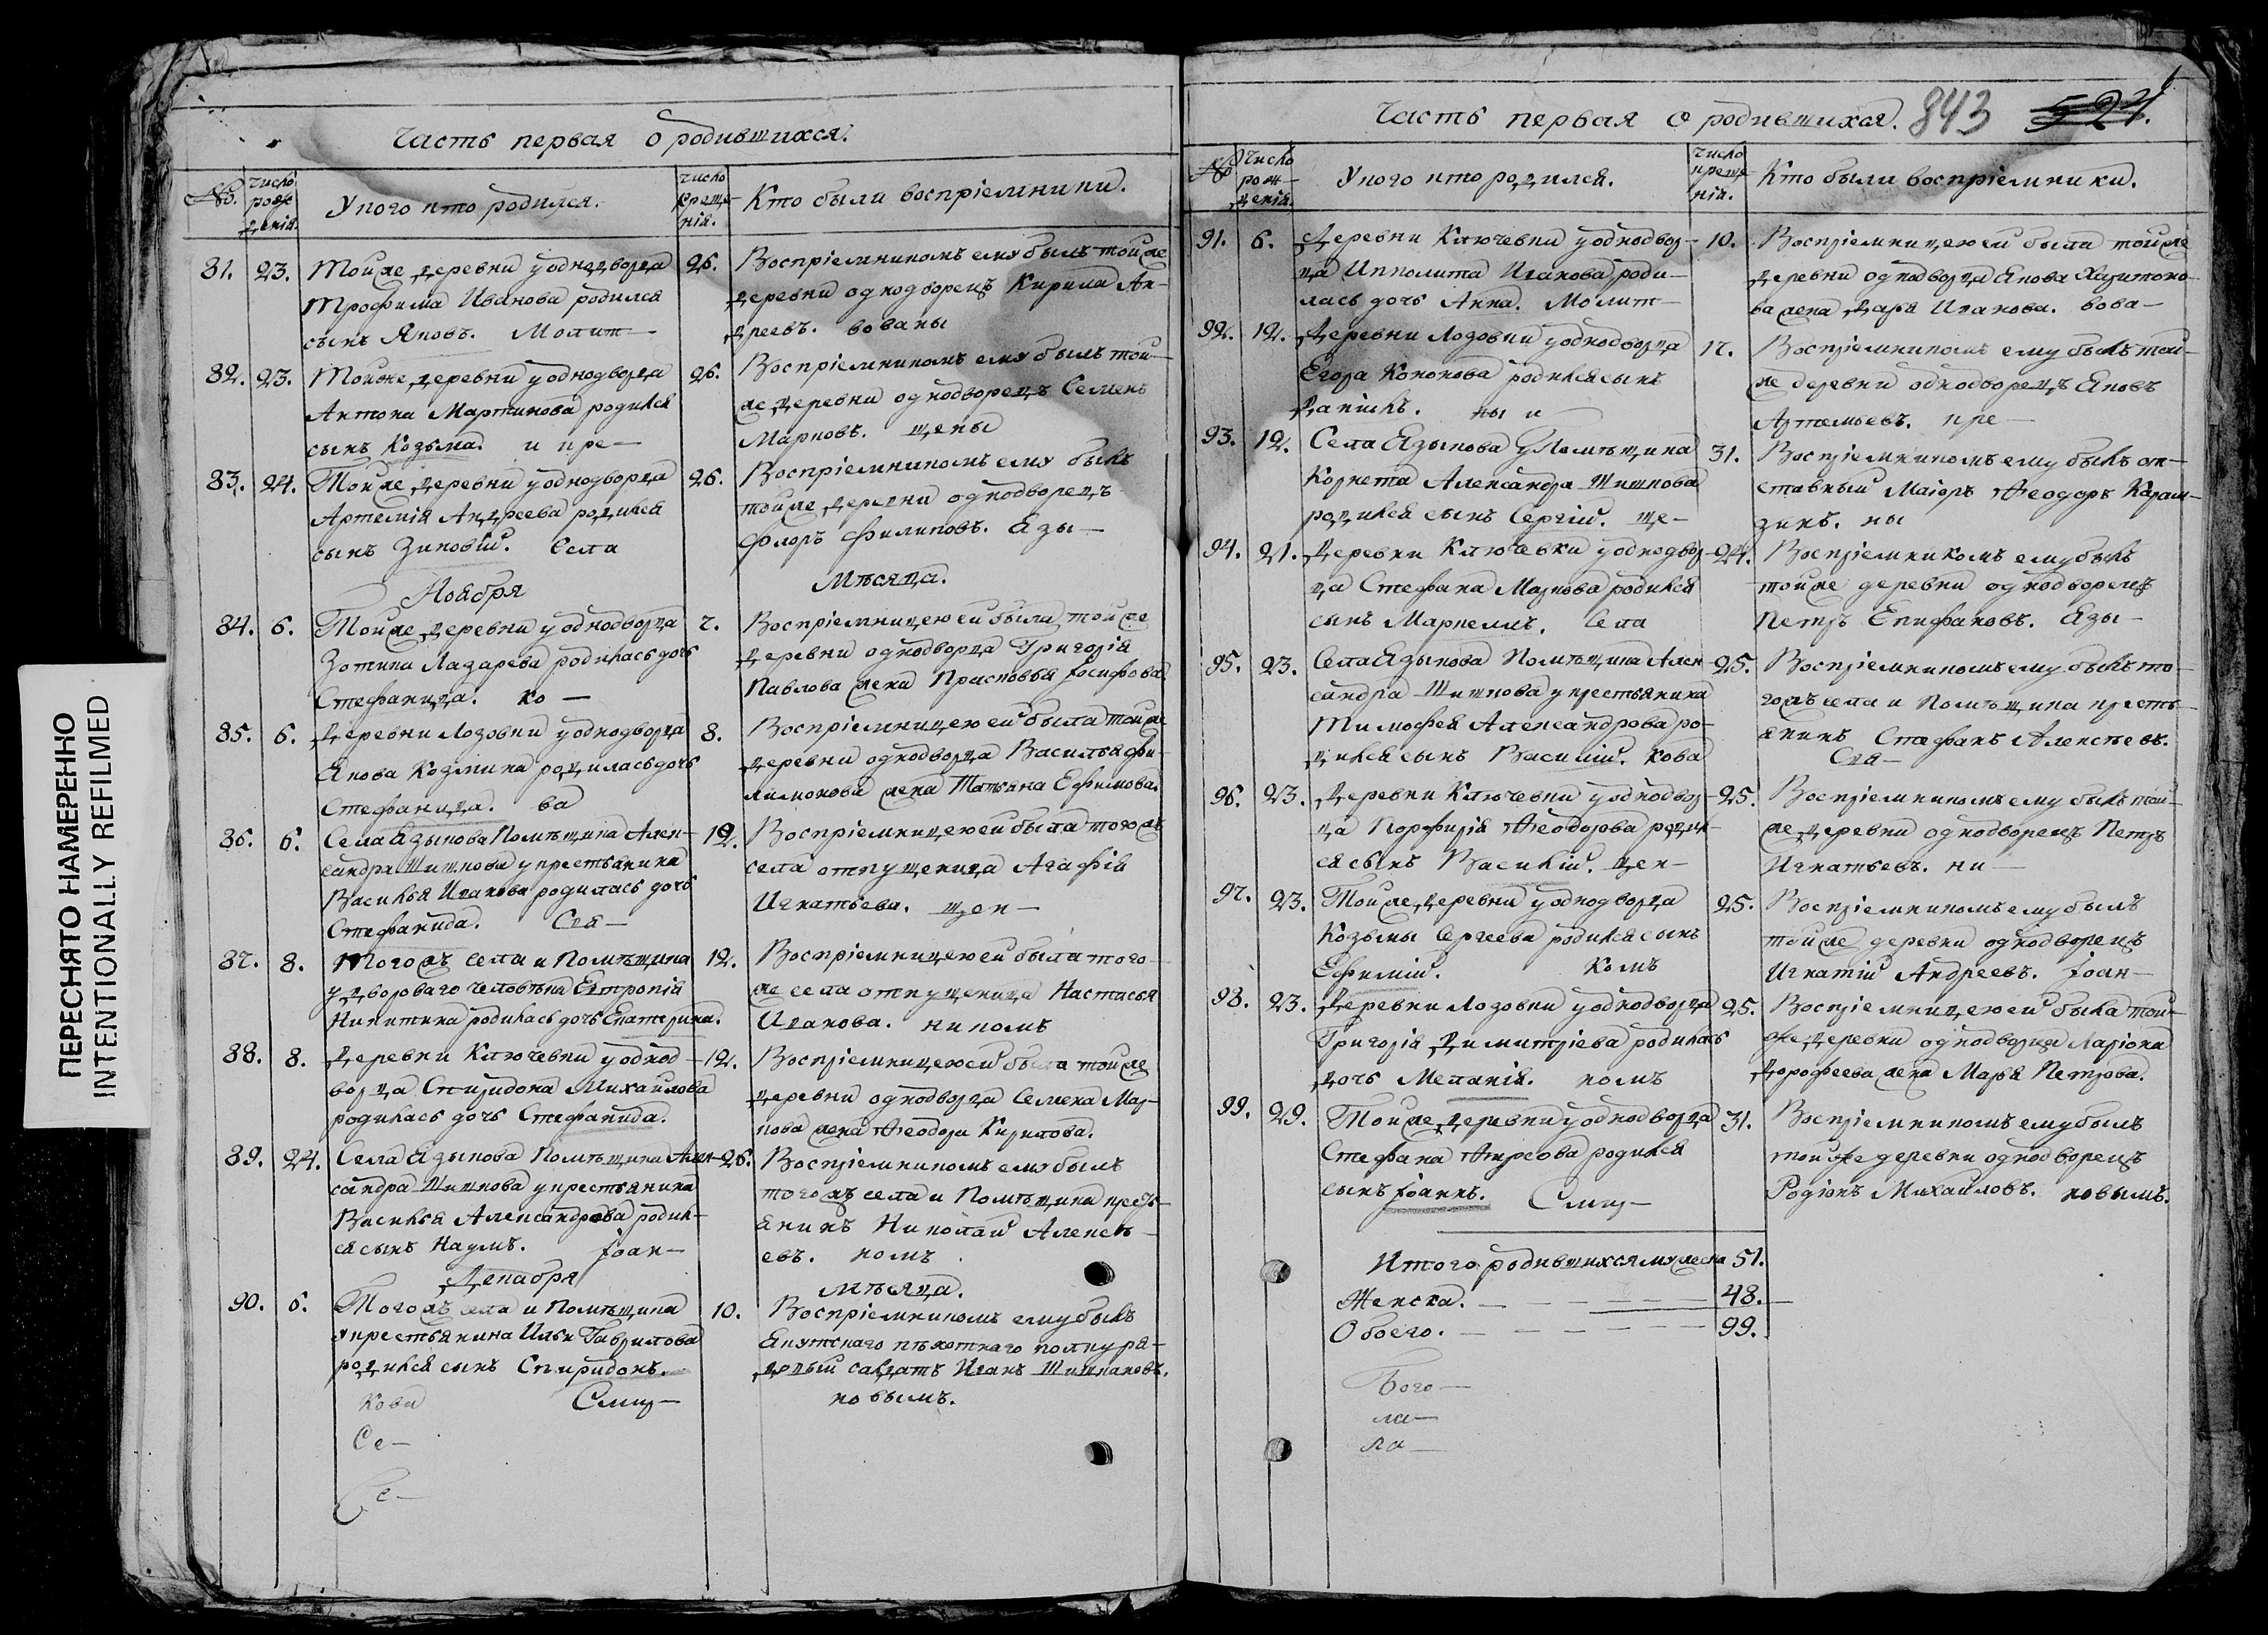 ПЕРЕСНЯТО НАМЕРЕННО
INTENTIONALLY REFILMED
Часть первая о родившихся.
№. число рожденія. У кого кто родился. число крещенія. Кто были воспріемники.
81. 23. Тойже деревни у однодворца
Трофима Иванова родился
сынъ Яковъ. Молит-
26. Воспріемникомъ ему былъ тойже
деревни однодворецъ Кирила Ан-
дреевъ. вованы
82. 23. Тойже деревни у однодворца
Антона Мартинова родился
сынъ Козьма. и кре-
26. Воспріемникомъ ему былъ той-
же деревни однодворецъ Семенъ
Марковъ. щены
83. 24. Тойже деревни у однодворца
Артемія Андреева родился
сынъ Зиновій. Села
26. Воспріемникомъ ему былъ
тойже деревни однодворецъ
Флоръ Филиповъ. Язы-
Ноября Мѣсяца.
84. 6. Тойже деревни у однодворца
Зотика Лазарева родилась дочь
Стефанида. ко-
7. Воспріемницею ей была тойже
деревни однодворца Григорія
Павлова жена Прасковья Іосифова
85. 6. Деревни Лозовки у однодворца
Якова Козмина родилась дочь
Стефанида. ва
8. Воспріемницею ей была тойже
деревни однодворца Василья Фи-
лимонова жена Татьяна Ефимова.
86. 6. Села Языкова Помѣщика Алек-
сандра Шишкова у крестьянина
Василья Иванова родилась дочь
Стефанида. Свя-
12. Воспріемницею ей была тогожъ
села отпущеница Агафія
Игнатьева. щен-
87. 8. Тогожъ села и Помѣщика
у двороваго человѣка Евтропія
Никитина родилась дочь Екатерина.
12. Воспріемницею ей была того-
же села отпущеница Настасья
Иванова. никомъ
88. 8. Деревни Ключевки у однод-
ворца Спиридона Михайлова
родилась дочь Стефанида.
12. Воспріемницею ей была тойже
деревни однодворца Семена Мар-
кова жена Ѳеодора Кирилова.
89. 24. Села Языкова Помѣщика Алек-
сандра Шишкова у крестьянина
Василья Александрова родил-
ся сынъ Наумъ. Іоан-
26. Воспріемникомъ ему былъ
тогожъ села и Помѣщика крест-
янинъ Николай Алексѣ-
евъ. номъ
Декабря мѣсяца.
90. 6. Тогожъ села и Помѣщика
у крестьянина Ильи Гаврилова
родился сынъ Спиридонъ.
10. Воспріемникомъ ему былъ
Якутскаго пѣхотнаго полку ря-
довый салдатъ Иванъ Шишкановъ.
кова Смир- новымъ.
Се-
Се-
Часть первая о родившихся. 843
№ число рожденія. У кого кто родился. число крещенія. Кто были воспріемники.
91. 6. Деревни Ключевки у однодвор-
ца Ипполита Иванова роди-
лась дочь Анна. Молит-
10. Воспріемницею ей была тойже
деревни однодворца Якова Харитоно-
ва жена Дарья Иванова. вова-
92. 12. Деревни Лозовки у однодворца
Егора Кононова родился сынъ
Даніилъ. ны и
17. Воспріемникомъ ему былъ той-
же деревни однодворецъ Яковъ
Артемьевъ. кре-
93. 12. Села Языкова у Помѣщика
Корнета Александра Шишкова
родился сынъ Сергій. ще-
31. Воспріемникомъ ему былъ от-
ставный Маіоръ Ѳеодоръ Карам-
зинъ. ны
94. 21. Деревни Ключевки у однодвор-
ца Стефана Маркова родился
сынъ Маркеллъ. Села
24. Воспріемникомъ ему былъ
тойже деревни однодворецъ
Петръ Епифановъ. Язы-
95. 23. Села Языкова Помѣщика Алек-
сандра Шишкова у крестьянина
Тимофея Александрова ро-
дился сынъ Василій. кова
25. Воспріемникомъ ему былъ то-
гожъ села и Помѣщика кресть-
янинъ Стефанъ Алексѣевъ.
Свя-
96. 23. Деревни Ключевки у однодвор-
ца Порфирія Ѳеодорова родил-
ся сынъ Василій. щен-
25. Воспріемникомъ ему былъ той-
же деревни однодворецъ Петръ
Игнатьевъ. ни-
97. 23. Тойже деревни у однодворца
Козьмы Сергеева родился сынъ
Ефимій. комъ
25. Воспріемникомъ ему былъ
тойже деревни однодворецъ
Игнатій Андреевъ. Іоан-
98. 23. Деревни Лозовки у однодворца
Григорія Димитріева родилась
дочь Меланія. номъ
25. Воспріемницею ей была той-
же деревни однодворца Ларіона
Дорофеева жена Марья Петрова.
99. 29. Тойже деревни у однодворца
Стефана Ѳирсова родился
сынъ Іоаннъ. Смир-
31. Воспріемникомъ ему былъ
тойже деревни однодворецъ
Родіонъ Михайловъ. новымъ.
Итого родившихся мужеска 51.
Женска. 48.
Обоего. 99.
Бого-
ла-
ла-